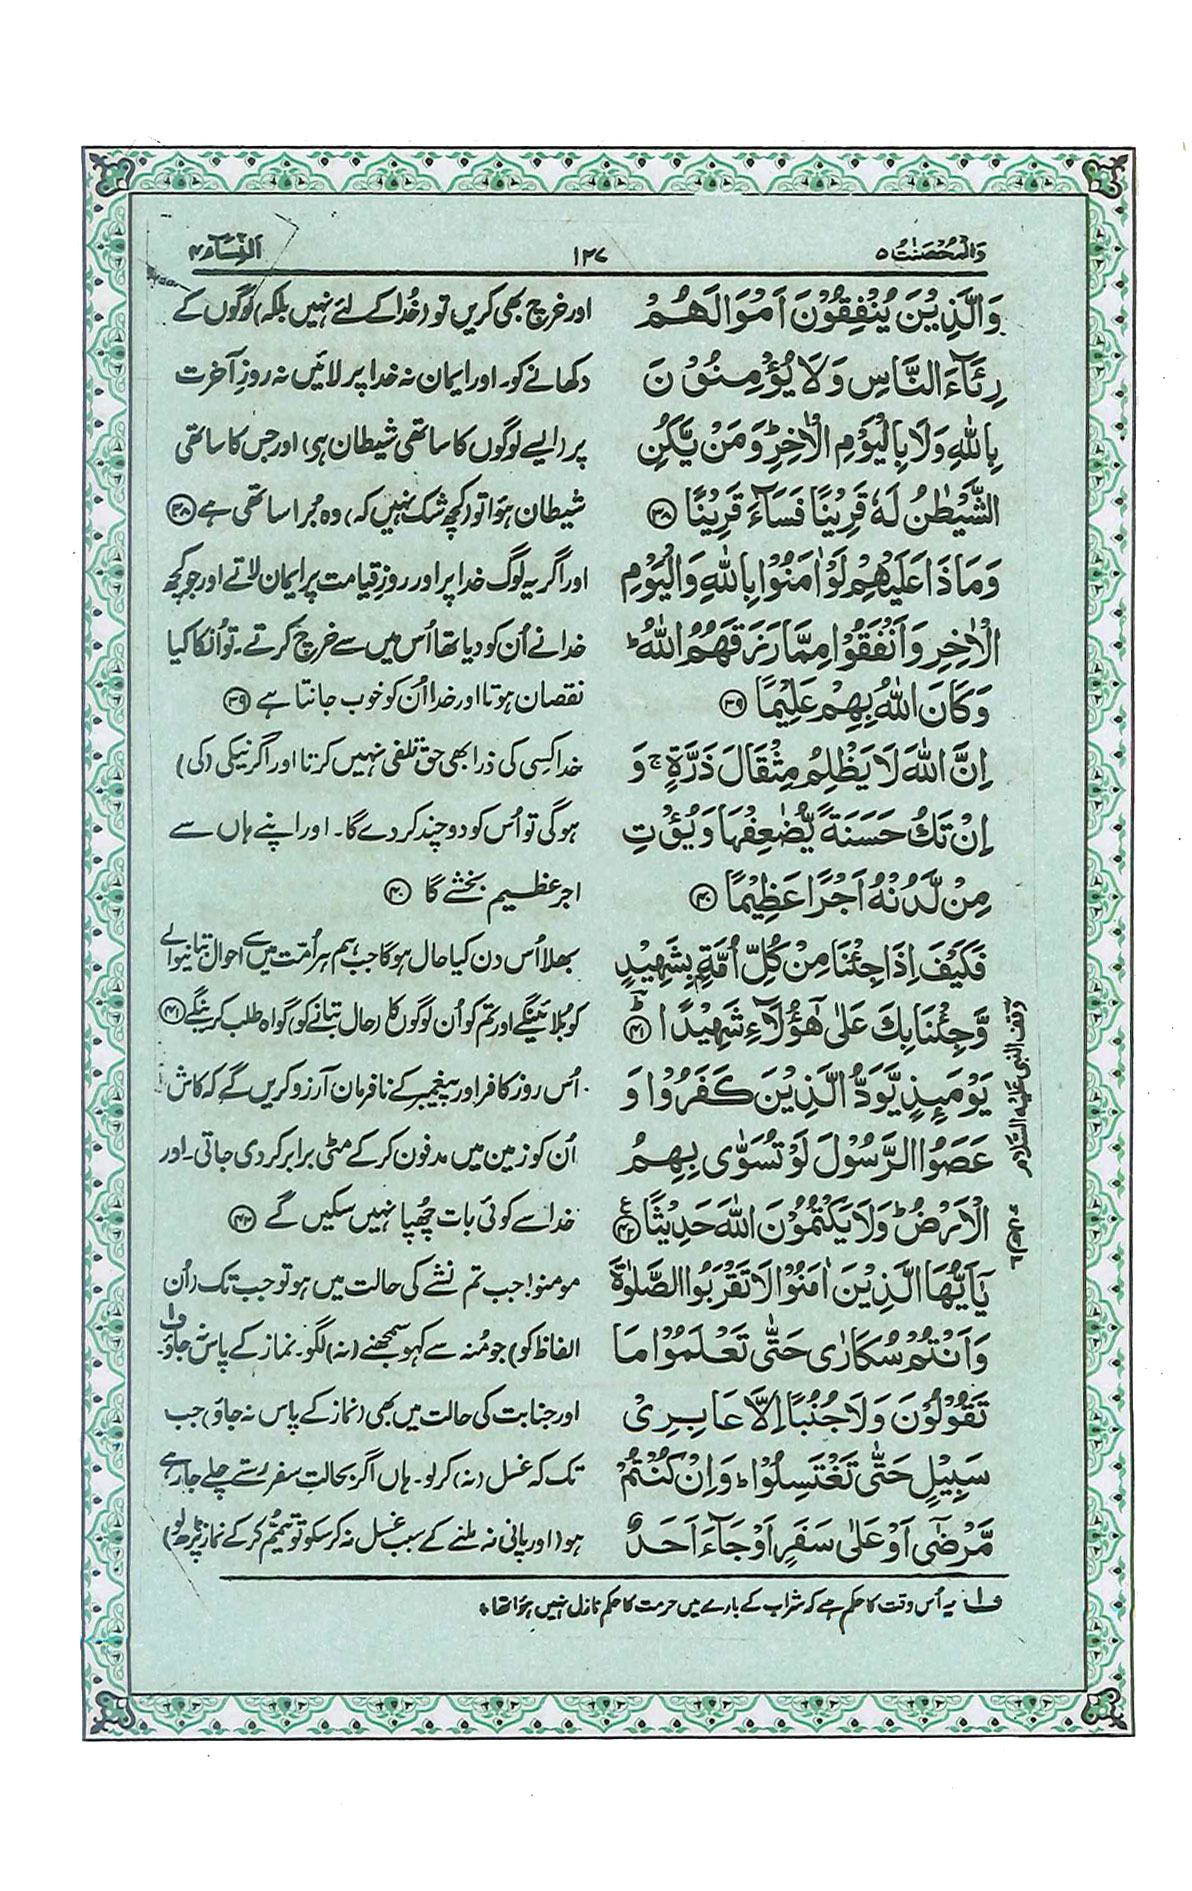 وَالْمُحْصَنٰتُ ۵
۱۲۷
اَلنِّسَآء ۴
وَالَّذِيْنَ يُنْفِقُوْنَ اَمْوَالَهُمْ
رِئَآءَ النَّاسِ وَلَا يُؤْمِنُوْنَ
بِاللّٰهِ وَلَا بِالْيَوْمِ الْاٰخِرِ ؕ وَمَنْ يَّكُنِ
الشَّيْطٰنُ لَهٗ قَرِيْنًا فَسَآءَ قَرِيْنًا ﴿۳۸﴾
وَمَاذَا عَلَيْهِمْ لَوْ اٰمَنُوْا بِاللّٰهِ وَالْيَوْمِ
الْاٰخِرِ وَاَنْفَقُوْا مِمَّا رَزَقَهُمُ اللّٰهُ ؕ
وَكَانَ اللّٰهُ بِهِمْ عَلِيْمًا ﴿۳۹﴾
اِنَّ اللّٰهَ لَا يَظْلِمُ مِثْقَالَ ذَرَّةٍ ۚ وَ
اِنْ تَكُ حَسَنَةً يُّضٰعِفْهَا وَيُؤْتِ
مِنْ لَّدُنْهُ اَجْرًا عَظِيْمًا ﴿۴۰﴾
فَكَيْفَ اِذَا جِئْنَا مِنْ كُلِّ اُمَّةٍۭ بِشَهِيْدٍ
وَّجِئْنَا بِكَ عَلٰى هٰٓؤُلَآءِ شَهِيْدًا ﴿۴۱﴾ؕ
يَوْمَئِذٍ يَّوَدُّ الَّذِيْنَ كَفَرُوْا وَ
عَصَوُا الرَّسُوْلَ لَوْ تُسَوّٰى بِهِمُ
الْاَرْضُ ؕ وَلَا يَكْتُمُوْنَ اللّٰهَ حَدِيْثًا ﴿۴۲﴾ع
يٰٓاَيُّهَا الَّذِيْنَ اٰمَنُوْا لَا تَقْرَبُوا الصَّلٰوةَ
وَاَنْتُمْ سُكَارٰى حَتّٰى تَعْلَمُوْا مَا
تَقُوْلُوْنَ وَلَا جُنُبًا اِلَّا عَابِرِىْ
سَبِيْلٍ حَتّٰى تَغْتَسِلُوْا ؕ وَاِنْ كُنْتُمْ
مَّرْضٰٓى اَوْ عَلٰى سَفَرٍ اَوْ جَآءَ اَحَدٌ
وقف النبى عليه السلام
اور خرچ بھی کریں تو (خُدا کے لئے نہیں بلکہ) لوگوں کے
دکھانے کو۔ اور ایمان نہ خدا پر لائیں نہ روزِ آخرت
پر (ایسے لوگوں کا ساتھی شیطان ہی) اور جس کا ساتھی
شیطان ہوا تو (کچھ شک نہیں کہ) وہ بُرا ساتھی ہے ﴿۳۸﴾
اور اگر یہ لوگ خدا پر اور روزِ قیامت پر ایمان لاتے اور جو کچھ
خدا نے اُن کو دیا تھا اُس میں سے خرچ کرتے۔ تو اُنکا کیا
نقصان ہوتا اور خدا اُن کو خوب جانتا ہے ﴿۳۹﴾
خدا کسی کی ذرا بھی حق تلفی نہیں کرتا اور اگر نیکی (کی)
ہوگی تو اُس کو دو چند کر دے گا۔ اور اپنے ہاں سے
اجرِ عظیم بخشے گا ﴿۴۰﴾
بھلا اُس دن کیا حال ہوگا جب ہم ہر اُمّت میں سے احوال بتانیوالے
کو بلائینگے اور تم کو اُن لوگوں کا (حال بتانے کو) گواہ طلب کرینگے ﴿۴۱﴾
اُس روز کافر اور پیغمبر کے نافرمان آرزو کریں گے کہ کاش
اُن کو زمین میں مدفون کر کے مٹی برابر کر دی جاتی۔ اور
خدا سے کوئی بات چُھپا نہیں سکیں گے ﴿۴۲﴾
مومنو! جب تم نشے کی حالت میں ہو تو جب تک (اُن
الفاظ کو) جو مُنہ سے کہو سمجھنے (نہ) لگو۔ نماز کے پاس نہ جاؤ ف۱۔
اور جنابت کی حالت میں بھی (نماز کے پاس نہ جاؤ) جب
تک کہ غسل (نہ) کر لو۔ ہاں اگر بحالتِ سفر رستے چلے جا رہے
ہو (اور پانی نہ ملنے کے سبب غسل نہ کر سکو تو تیمّم کر کے نماز پڑھ لو)
ف۱ یہ اُس وقت کا حکم ہے کہ شراب کے بارے میں حرمت کا حکم نازل نہیں ہوا تھا ٭